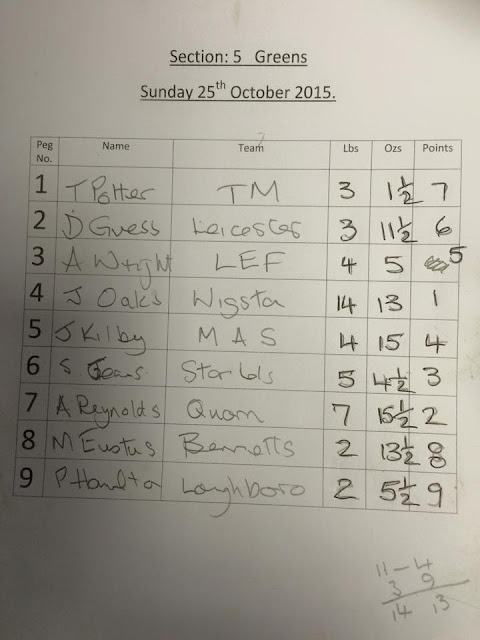 Section: 5 Greens
Sunday 25th October 2015.
Peg No. Name Team Lbs Ozs Points
1 T Potter TM 3 1½ 7
2 D Guess Leicester 3 11½ 6
3 A Wright LEF 4 5 5
4 J Oaks Wigsta 14 13 1
5 J Kilby MAS 4 15 4
6 S Starlets 5 4½ 3
7 A Reynolds Quorn 7 15½ 2
8 M Eustus Bennetts 2 13½ 8
9 P Hamilton Loughboro 2 5½ 9
11 - 4
3 9
14 13